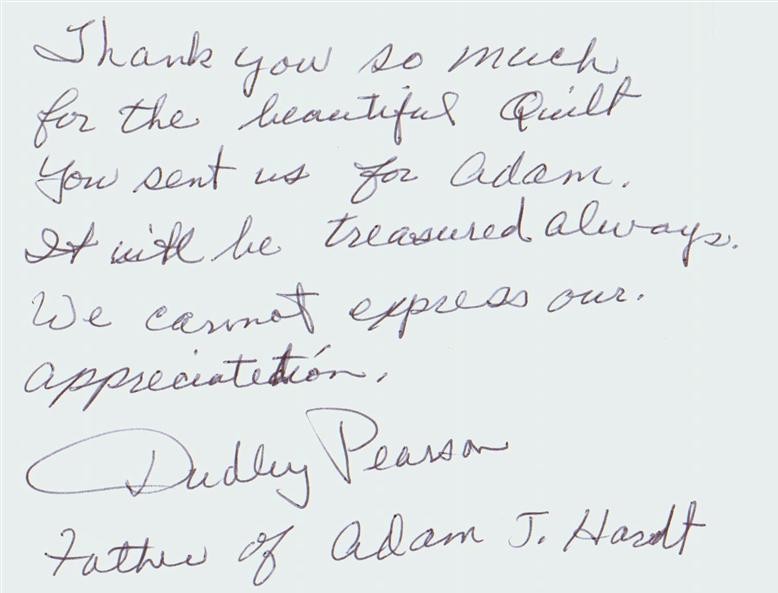 Thank you so much
for the beautiful Quilt
You sent us for Adam.
It will be treasured always.
We cannot express our.
appreciation,
Dudley Pearson
Father of Adam J. Hardt